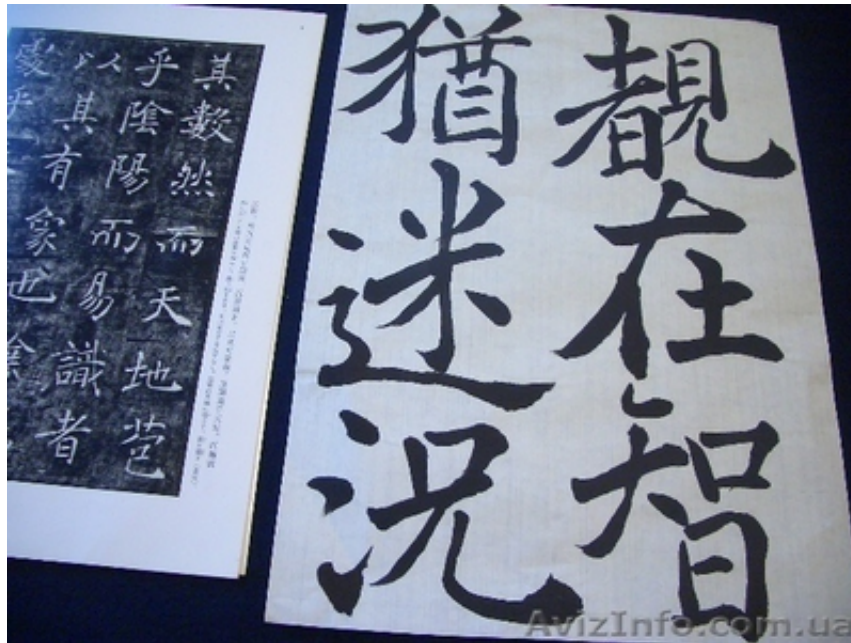 覩在智
猶迷況
其數然而天地苞
乎陰陽而易識者
以其有象也陰
處乎
AvizInfo.com.ua